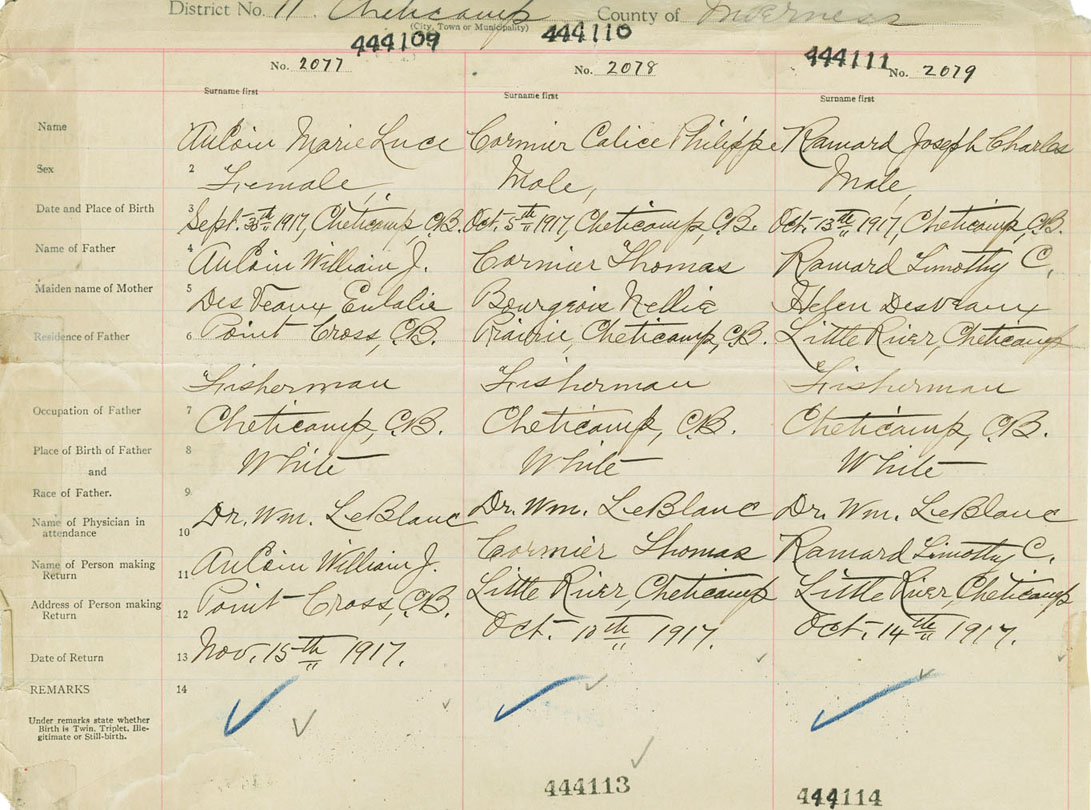 District No. 11. Cheticamp County of Inverness
(City, Town or Municipality)
444109 444110 444111
No. 2077 No. 2078 No. 2079
Surname first Surname first Surname first
Name 1 AuCoin Marie Luce Cormier Calice Philippe Raward Joseph Charles
Sex 2 Female, Male, Male,
Date and Place of Birth 3 Sept. 30th 1917, Cheticamp, C.B. Oct. 5th 1917, Cheticamp, C.B. Oct. 13th 1917, Cheticamp, C.B.
Name of Father 4 AuCoin William J. Cormier Thomas Raward Timothy C.
Maiden name of Mother 5 DesVeaux Eulalie Bourgeois Nellie Helen Desveaux
Residence of Father 6 Point Cross, C.B. Prairie, Cheticamp, C.B. Little River, Cheticamp
Fisherman Fisherman Fisherman
Occupation of Father 7 Cheticamp, C.B. Cheticamp, C.B. Cheticamp, C.B.
Place of Birth of Father 8 White White White
and
Race of Father. 9
Name of Physician in attendance 10 Dr. Wm. LeBlanc Dr. Wm. LeBlanc Dr. Wm. LeBlanc
Name of Person making Return 11 AuCoin William J. Cormier Thomas Raward Timothy C.
Address of Person making Return 12 Point Cross, C.B. Little River, Cheticamp Little River, Cheticamp
Date of Return 13 Nov. 15th 1917. Oct. 10th 1917. Oct. 14th 1917.
REMARKS 14
Under remarks state whether
Birth is Twin, Triplet, Ille-
gitimate or Still-birth.
444113 444114